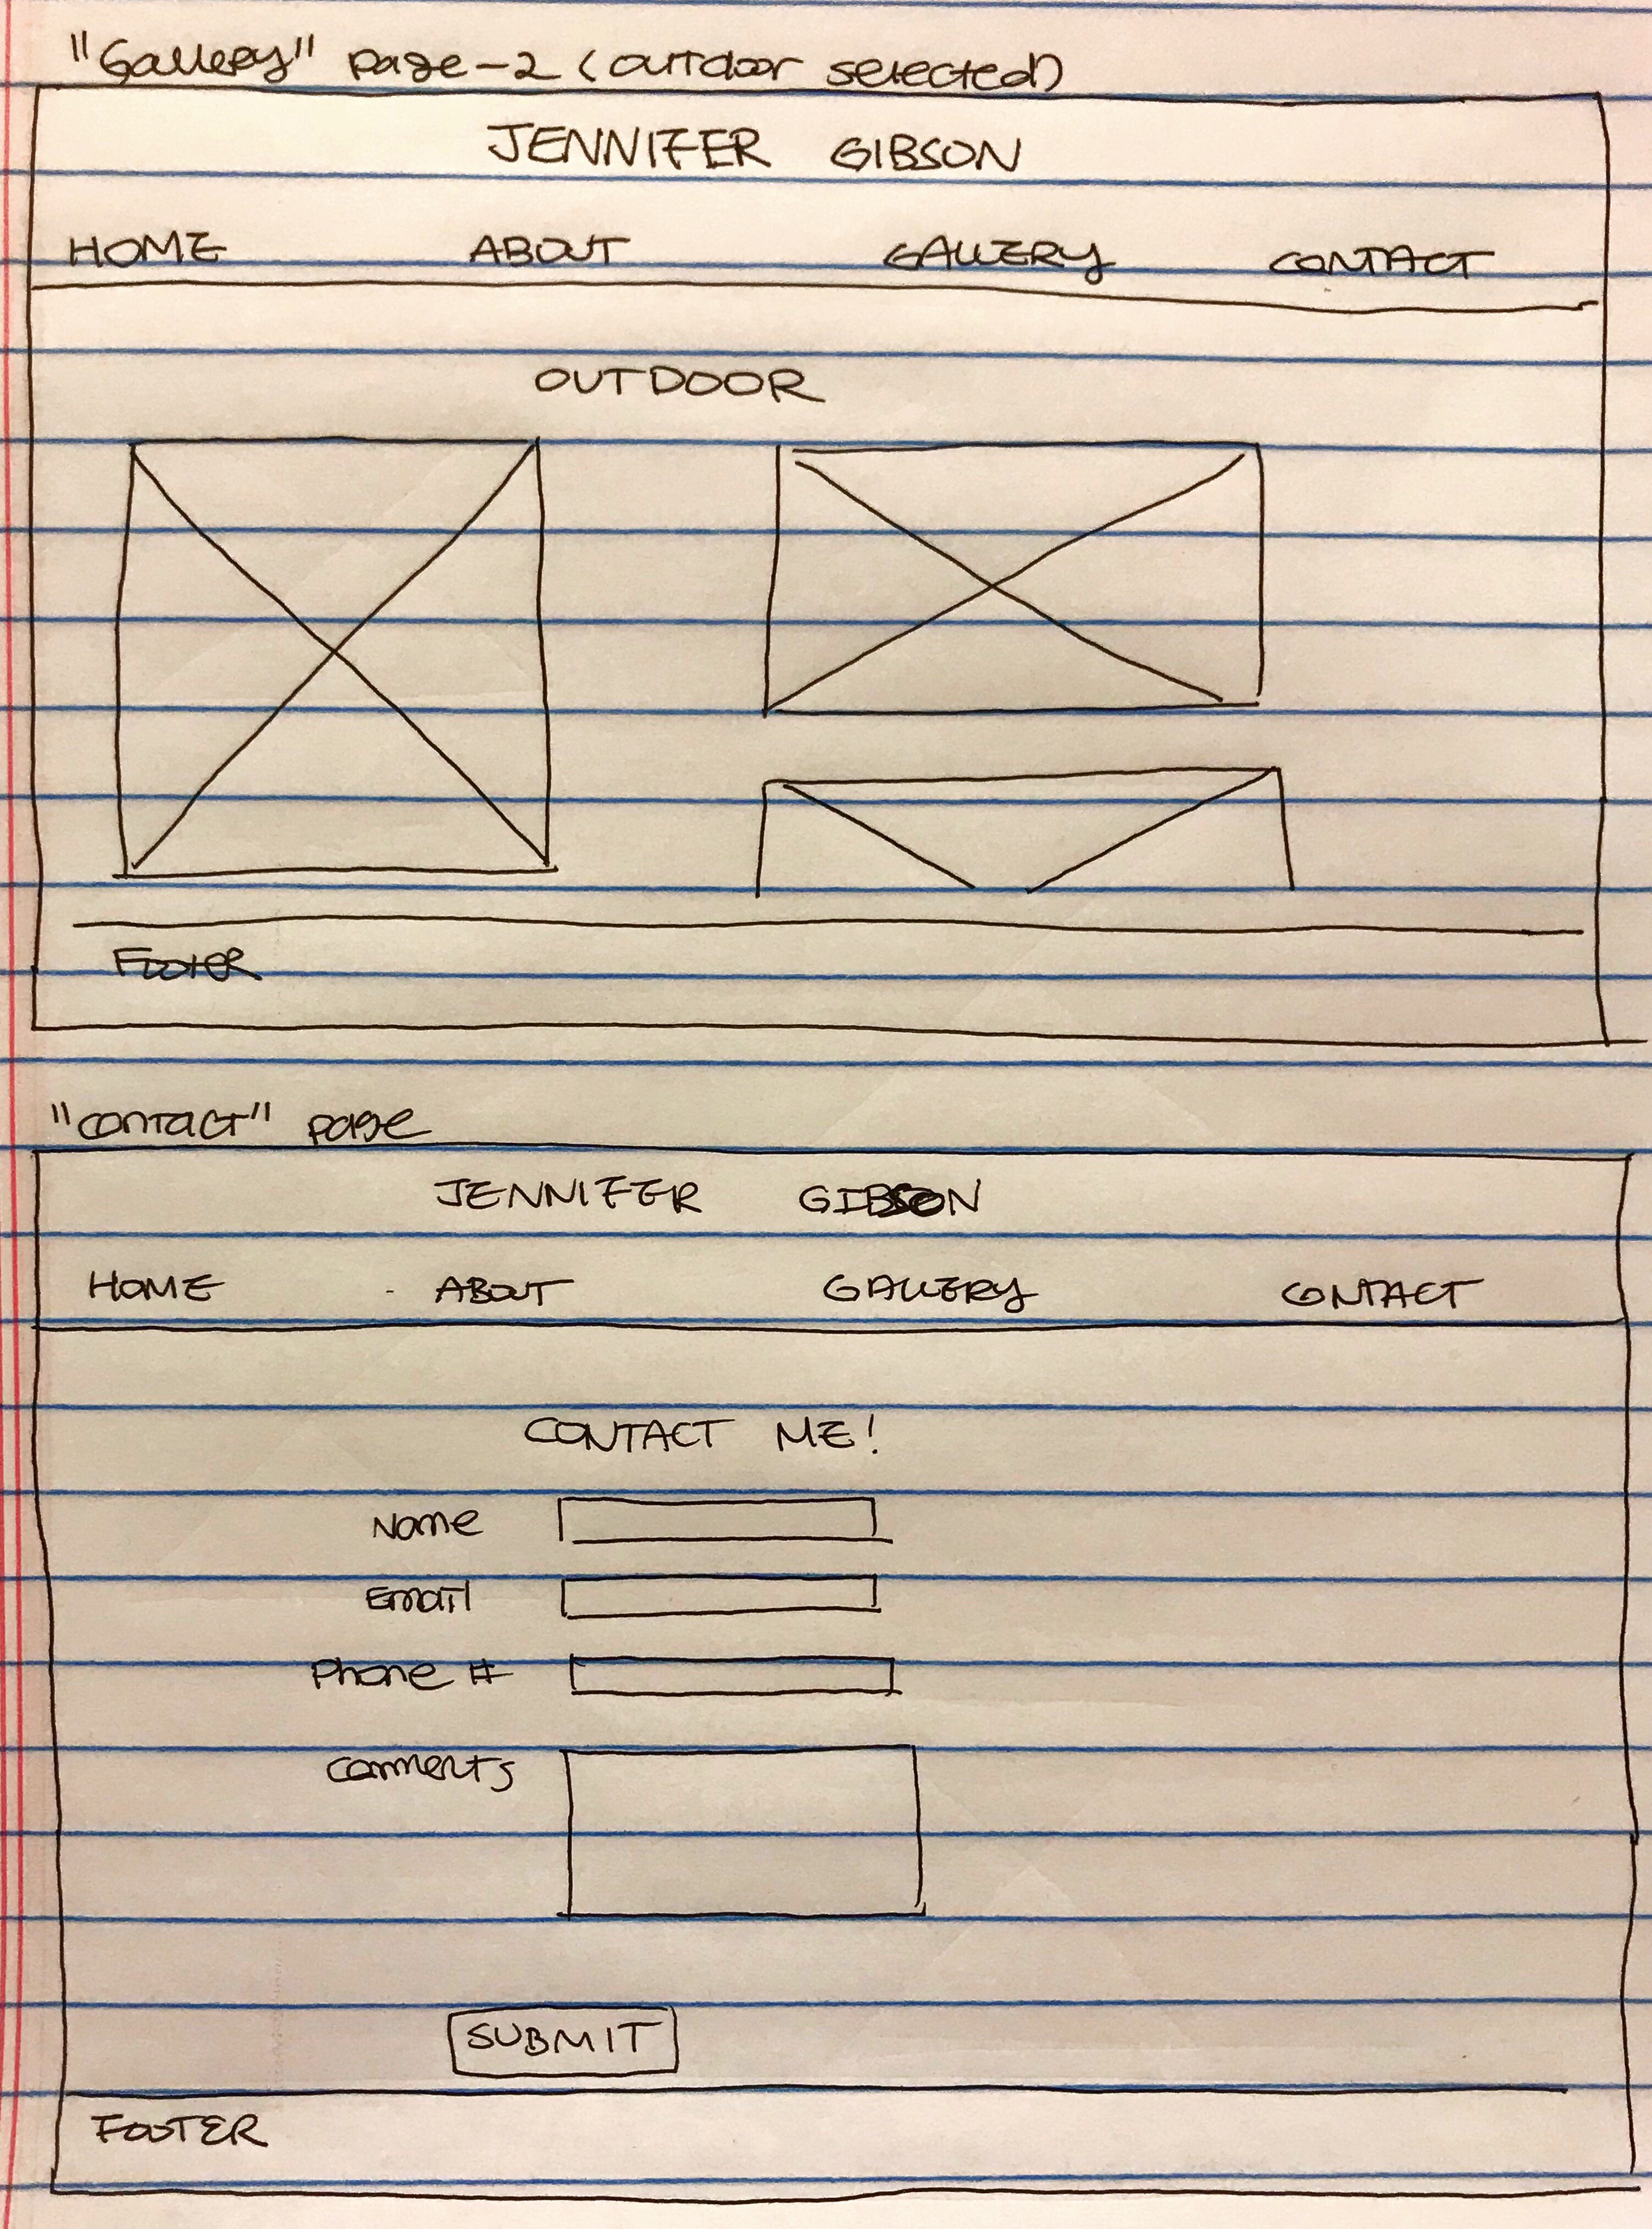 "Gallery" page-2 (outdoor selected)
JENNIFER GIBSON
HOME ABOUT GALLERY CONTACT
OUTDOOR
FOOTER
"contact" page
JENNIFER GIBSON
HOME ABOUT GALLERY CONTACT
CONTACT ME!
Name
Email
Phone #
comments
SUBMIT
FOOTER